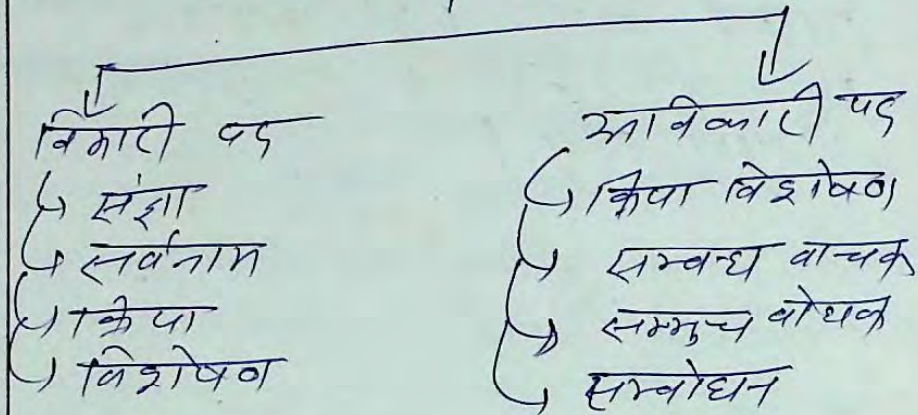 विकारी पद
संज्ञा
सर्वनाम
क्रिया
विशेषण
अविकारी पद
क्रिया विशेषण
सम्बन्ध वाचक
सम्मुच बोधक
सम्बोधन